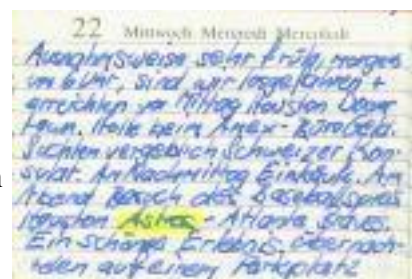 22 Mittwoch Mercredi Mercoledì
Ausnahmsweise sehr früh, morgens
um 6 Uhr, sind wir losgefahren +
erreichten vor Mittag Houston Down
town. Hole beim Amex-Büro Geld.
Suchten vergeblich Schweizer Kon-
sulat. Am Nachmittag Einkäufe. Am
Abend Besuch des Baseballspiels
Houston Astros - Atlanta Braves.
Ein schönes Erlebnis. Übernach-
ten auf einem Parkplatz